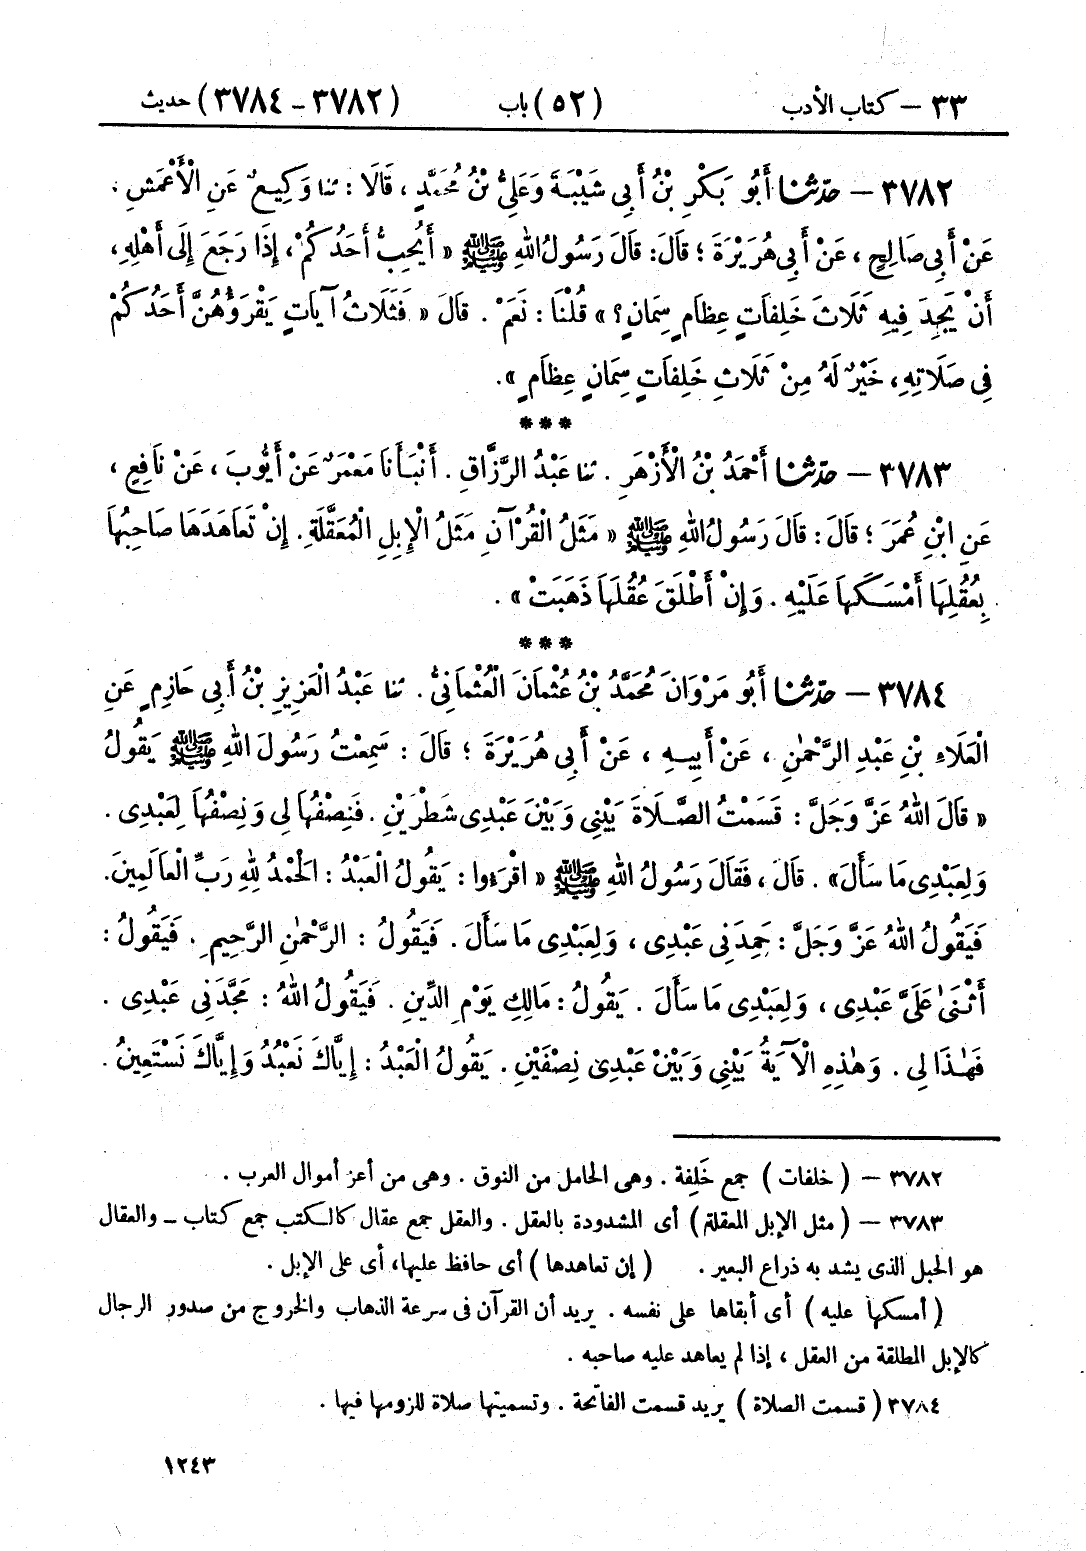 ٣٣ – كتاب الأدب (٥٢) باب (٣٧٨٢ – ٣٧٨٤) حديث
٣٧٨٢ – حدّثنا أَبُو بَكْرِ بْنُ أَبِي شَيْبَةَ وَعَلِيُّ بْنُ مُحَمَّدٍ ، قَالَا : ثنا وَكِيعٌ عَنِ الْأَعْمَشِ .
عَنْ أَبِي صَالِحٍ ، عَنْ أَبِي هُرَيْرَةَ ؛ قَالَ: قَالَ رَسُولُ اللهِ ﷺ « أَيُحِبُّ أَحَدُكُمْ ، إِذَا رَجَعَ إِلَى أَهْلِهِ،
أَنْ يَجِدَ فِيهِ ثَلَاثَ خَلِفَاتٍ عِظَامٍ سِمَانٍ؟ » قُلْنَا : نَعَمْ . قَالَ « فَثَلَاثُ آيَاتٍ يَقْرَؤُهُنَّ أَحَدُكُمْ
فِي صَلَاتِهِ، خَيْرٌ لَهُ مِنْ ثَلَاثِ خَلِفَاتٍ سِمَانٍ عِظَامٍ ».
***
٣٧٨٣ – حدّثنا أَحْمَدُ بْنُ الْأَزْهَرِ . ثنا عَبْدُ الرَّزَّاقِ . أَنْبَأَنَا مَعْمَرٌ عَنْ أَيُّوبَ ، عَنْ نَافِعٍ ،
عَنِ ابْنِ عُمَرَ ؛ قَالَ : قَالَ رَسُولُ اللهِ ﷺ « مَثَلُ الْقُرْآنِ مَثَلُ الْإِبِلِ الْمُعَقَّلَةِ. إِنْ تَعَاهَدَهَا صَاحِبُهَا
بِعُقُلِهَا أَمْسَكَهَا عَلَيْهِ . وَإِنْ أَطْلَقَ عُقُلَهَا ذَهَبَتْ » .
***
٣٧٨٤ – حدّثنا أَبُو مَرْوَانَ مُحَمَّدُ بْنُ عُثْمَانَ الْعُثْمَانِيُّ . ثنا عَبْدُ الْعَزِيزِ بْنُ أَبِي حَازِمٍ عَنِ
الْعَلَاءِ بْنِ عَبْدِ الرَّحْمٰنِ ، عَنْ أَبِيهِ ، عَنْ أَبِي هُرَيْرَةَ ؛ قَالَ : سَمِعْتُ رَسُولَ اللهِ ﷺ يَقُولُ
« قَالَ اللهُ عَزَّ وَجَلَّ : قَسَمْتُ الصَّلَاةَ بَيْنِي وَبَيْنَ عَبْدِي شَطْرَيْنِ . فَنِصْفُهَا لِي وَنِصْفُهَا لِعَبْدِي .
وَلِعَبْدِي مَا سَأَلَ» . قَالَ ، فَقَالَ رَسُولُ اللهِ ﷺ « اقْرَءُوا : يَقُولُ الْعَبْدُ : الْحَمْدُ لِلهِ رَبِّ الْعَالَمِينَ.
فَيَقُولُ اللهُ عَزَّ وَجَلَّ : حَمِدَنِي عَبْدِي ، وَلِعَبْدِي مَا سَأَلَ . فَيَقُولُ : الرَّحْمٰنِ الرَّحِيمِ . فَيَقُولُ :
أَثْنَىٰ عَلَيَّ عَبْدِي ، وَلِعَبْدِي مَا سَأَلَ . يَقُولُ : مَالِكِ يَوْمِ الدِّينِ . فَيَقُولُ اللهُ : مَجَّدَنِي عَبْدِي .
فَهٰذَا لِي . وَهٰذِهِ الْآيَةُ بَيْنِي وَبَيْنَ عَبْدِي نِصْفَيْنِ . يَقُولُ الْعَبْدُ : إِيَّاكَ نَعْبُدُ وَإِيَّاكَ نَسْتَعِينُ .
٣٧٨٢ – ( خلفات ) جمع خَلِفة . وهى الحامل من النوق . وهى من أعز أموال العرب .
٣٧٨٣ – ( مثل الإبل المعقلة ) أى المشدودة بالعقل . والعقل جمع عقال كالكتب جمع كتاب – والعقال
هو الحبل الذى يشد به ذراع البعير . ( إن تعاهدها ) أى حافظ عليها، أى على الإبل .
( أمسكها عليه ) أى أبقاها على نفسه . يريد أن القرآن فى سرعة الذهاب والخروج من صدور الرجال
كالإبل المطلقة من العقل ، إذا لم يعاهد عليه صاحبه .
٣٧٨٤ ( قسمت الصلاة ) يريد قسمت الفاتحة . وتسميتها صلاة للزومها فيها .
١٢٤٣